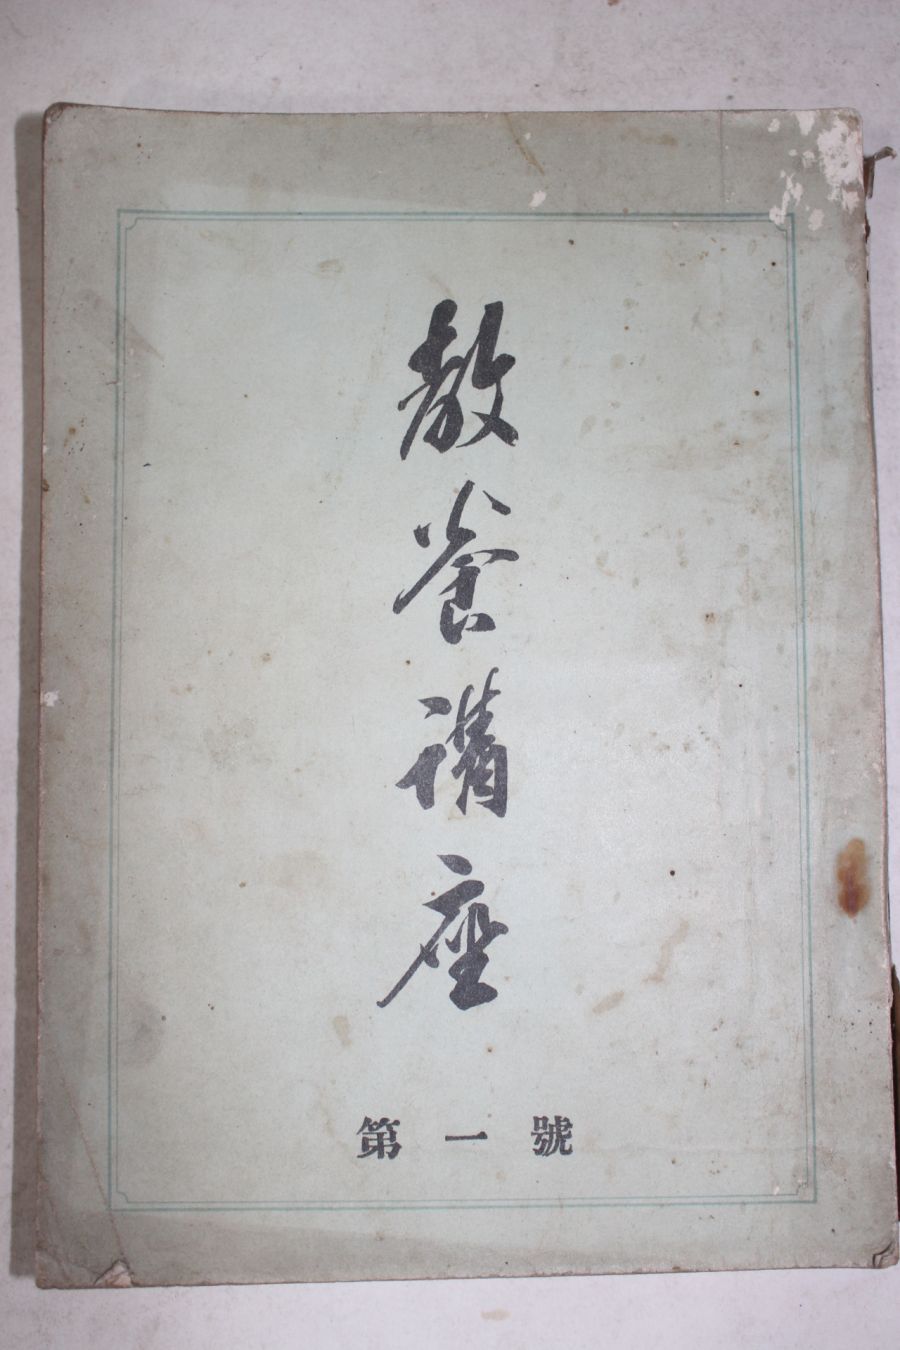 教養講座
第一號